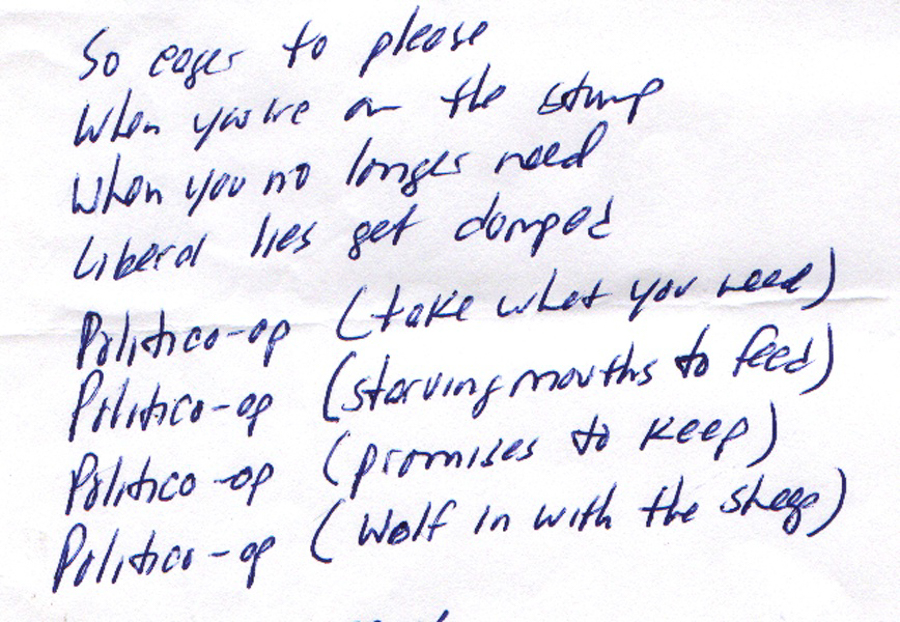 So eager to please
When you're on the stump
When you no longer need
Liberal lies get dumped
Politico-op (take what you need)
Politico-op (starving mouths to feed)
Politico-op (promises to keep)
Politico-op (Wolf in with the sheep)